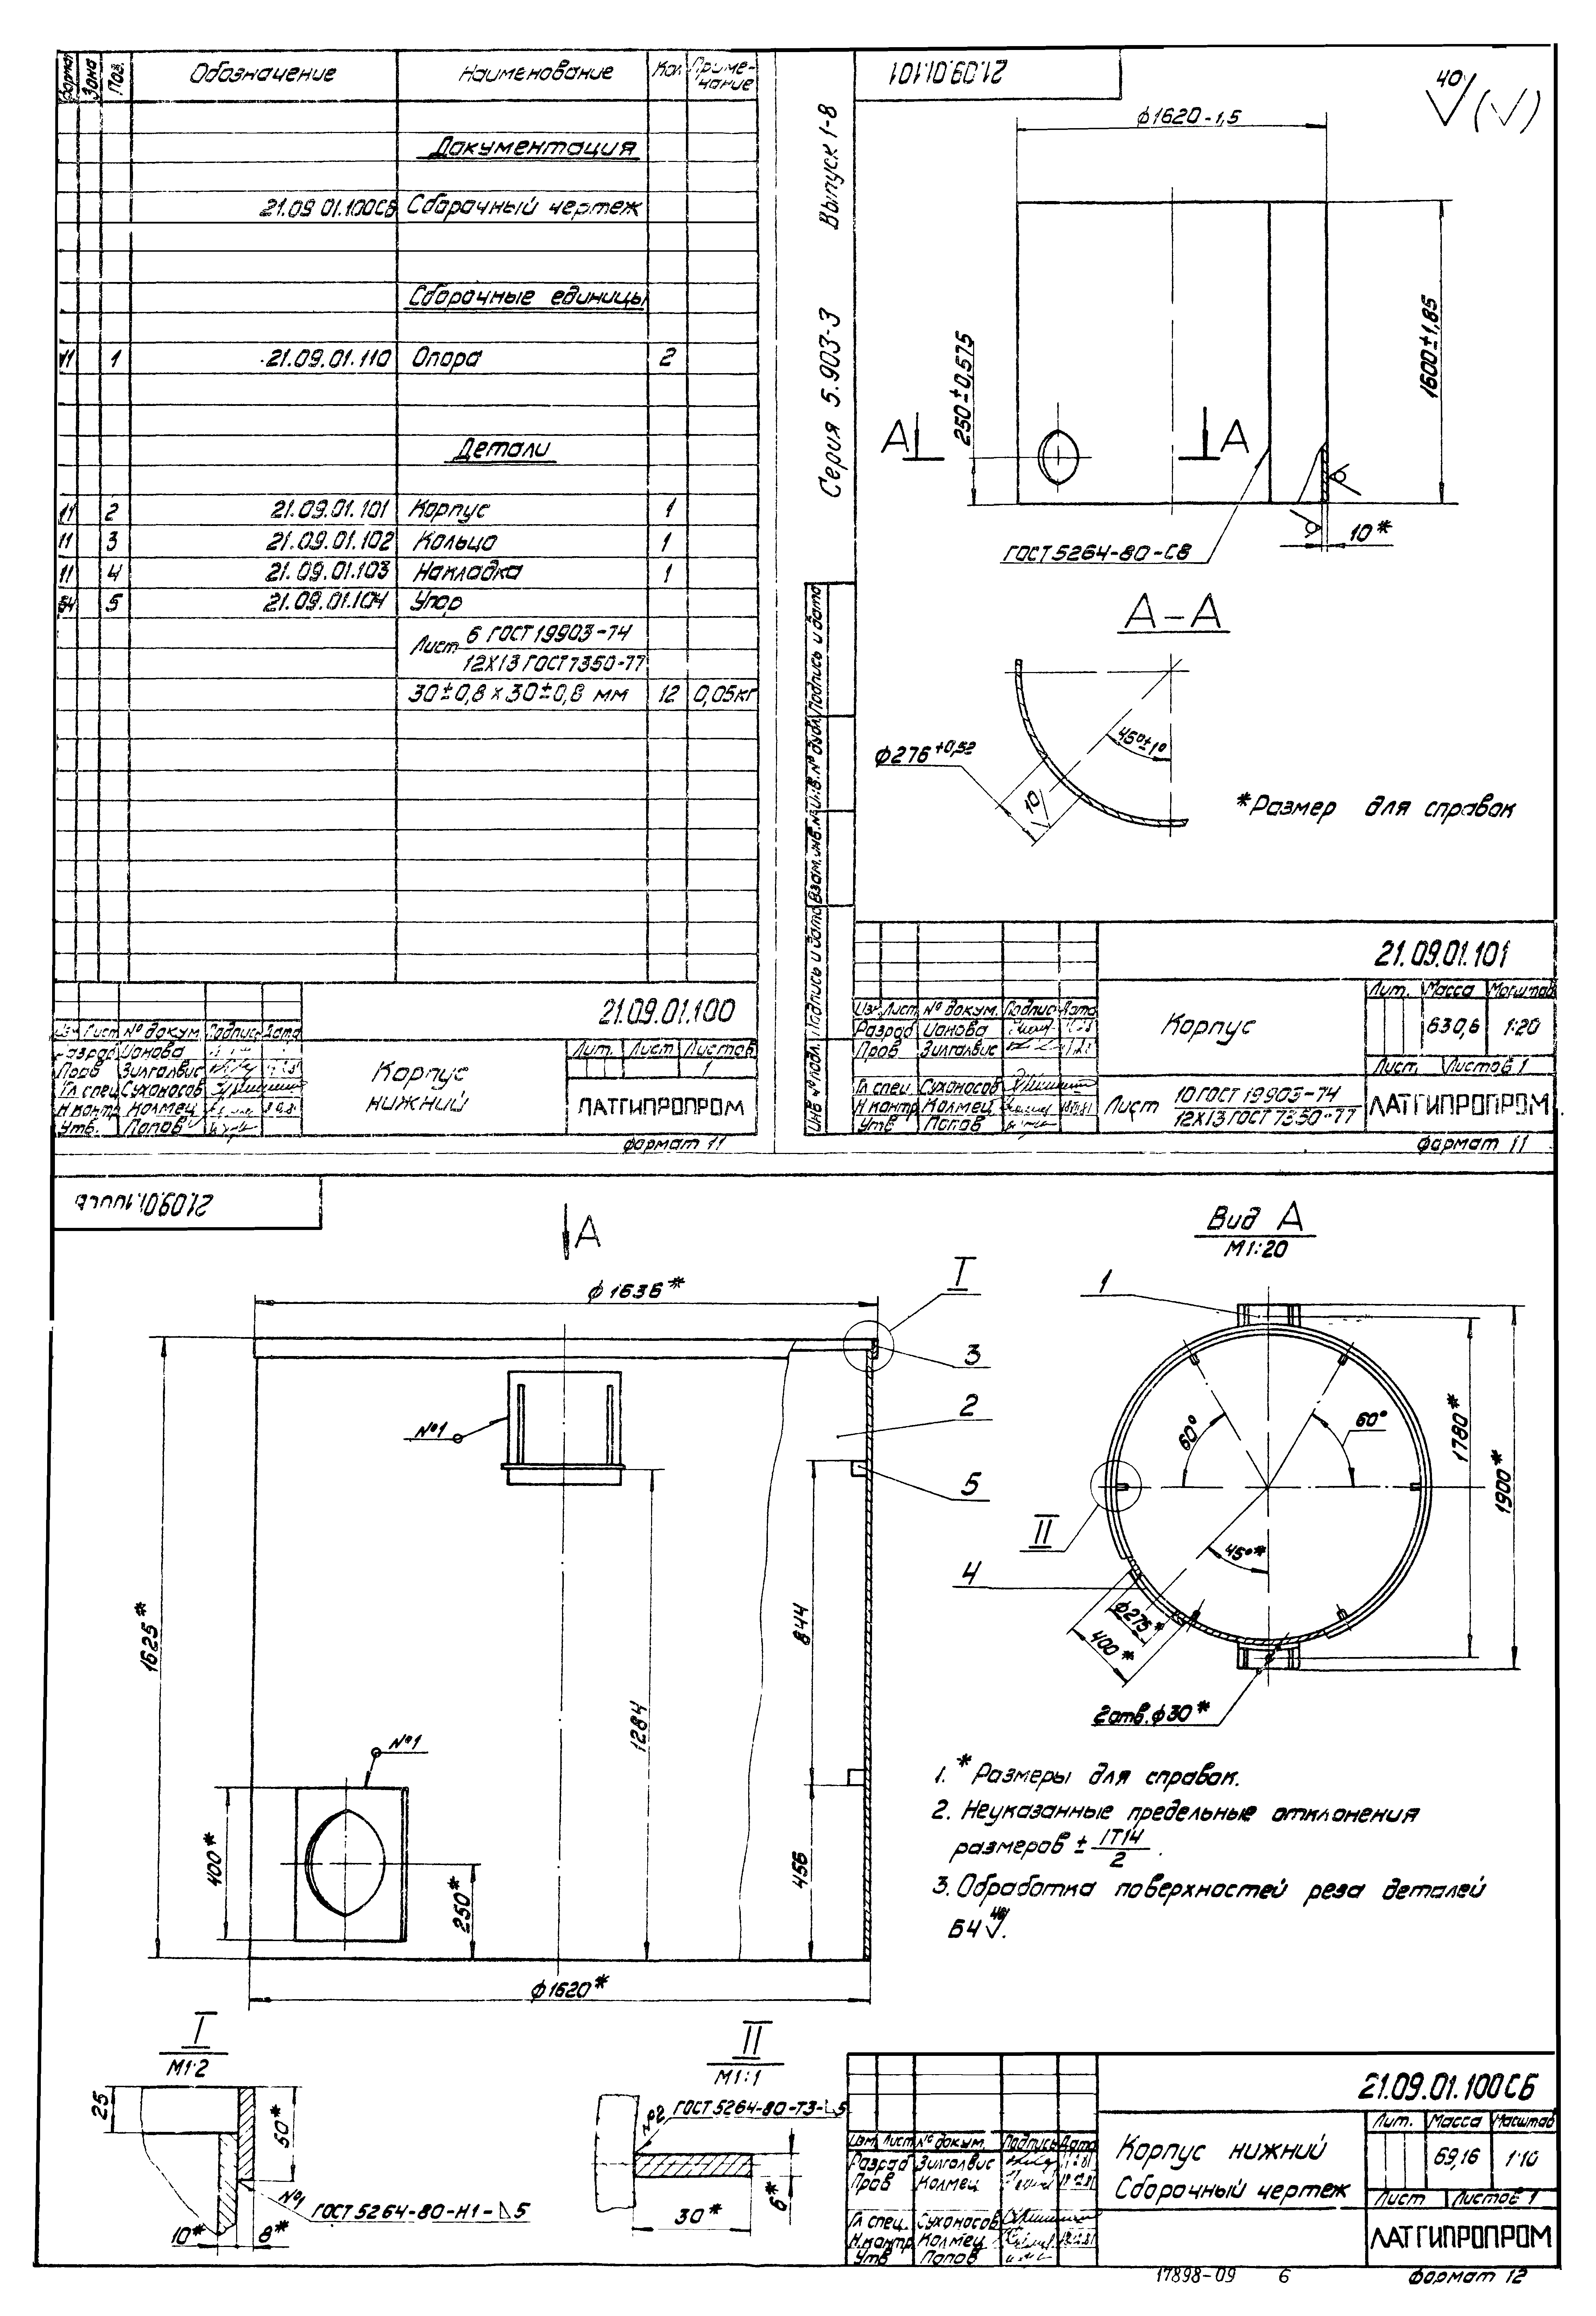 Формат Зона Поз. Обозначение Наименование Кол Приме-
чание
Документация
21.09 01.100СБ Сборочный чертеж
Сборочные единицы
11 1 21.09.01.110 Опора 2
Детали
11 2 21.09.01.101 Корпус 1
11 3 21.09.01.102 Кольцо 1
11 4 21.09.01.103 Накладка 1
Б4 5 21.09.01.104 Упор
Лист 6 ГОСТ 19903-74
12Х13 ГОСТ 7350-77
30±0,8 х 30±0,8 мм 12 0,05кг
21.09.01.100
Изм Лист № докум Подпись Дата
Разраб Ианова
Пров Зилгалвис
Гл спец Сухоносов
Н контр Колмец
Утв. Попов
Корпус
нижний
Лит. Лист Листов
1
ЛАТГИПРОПРОМ
формат 11
Серия 5.903-3 Выпуск 1-8
Инв № подл. Подпись и дата Взам. инв. № Инв. № дубл. Подпись и дата
21.09.01.101
40 (√)
ф1620-1,5
1600±1,85
250±0,575
А А
ГОСТ 5264-80-С8
10*
А-А
ф276+0,52
45°±1°
10
*Размер для справок
21.09.01.101
Изм Лист № докум. Подпись Дата
Разраб Ианова
Пров Зилгалвис
Гл спец Сухоносов
Н контр Колмец
Утв Попов
Корпус
Лит. Масса Масштаб
630,6 1:20
Лист Листов 1
Лист 10 ГОСТ 19903-74
12Х13 ГОСТ 7350-77
ЛАТГИПРОПРОМ
формат 11
21.09.01.100СБ
А
ф1636*
I
3
2
5
№1
1625*
844
1284
456
№1
400*
250*
ф1620*
Вид А
М1:20
1
60° 60°
1780*
1900*
II
45°*
4
ф275*
400*
2отв.ф30*
1. * Размеры для справок.
2. Неуказанные предельные отклонения
размеров ± IT14
2 .
3. Обработка поверхностей реза деталей
Б4 40.
I
М1:2
25
50*
№1
ГОСТ 5264-80-Н1-5
10* 8*
II
М1:1
№2 ГОСТ 5264-80-Т3-5
30*
6*
21.09.01.100СБ
Изм Лист № докум. Подпись Дата
Разраб Зилгалвис
Пров Колмец
Гл спец. Сухоносов
Н. контр Колмец
Утв Попов
Корпус нижний
Сборочный чертеж
Лит. Масса Масштаб
69,16 1:10
Лист Листов 1
ЛАТГИПРОПРОМ
17898-09 6
Формат 12